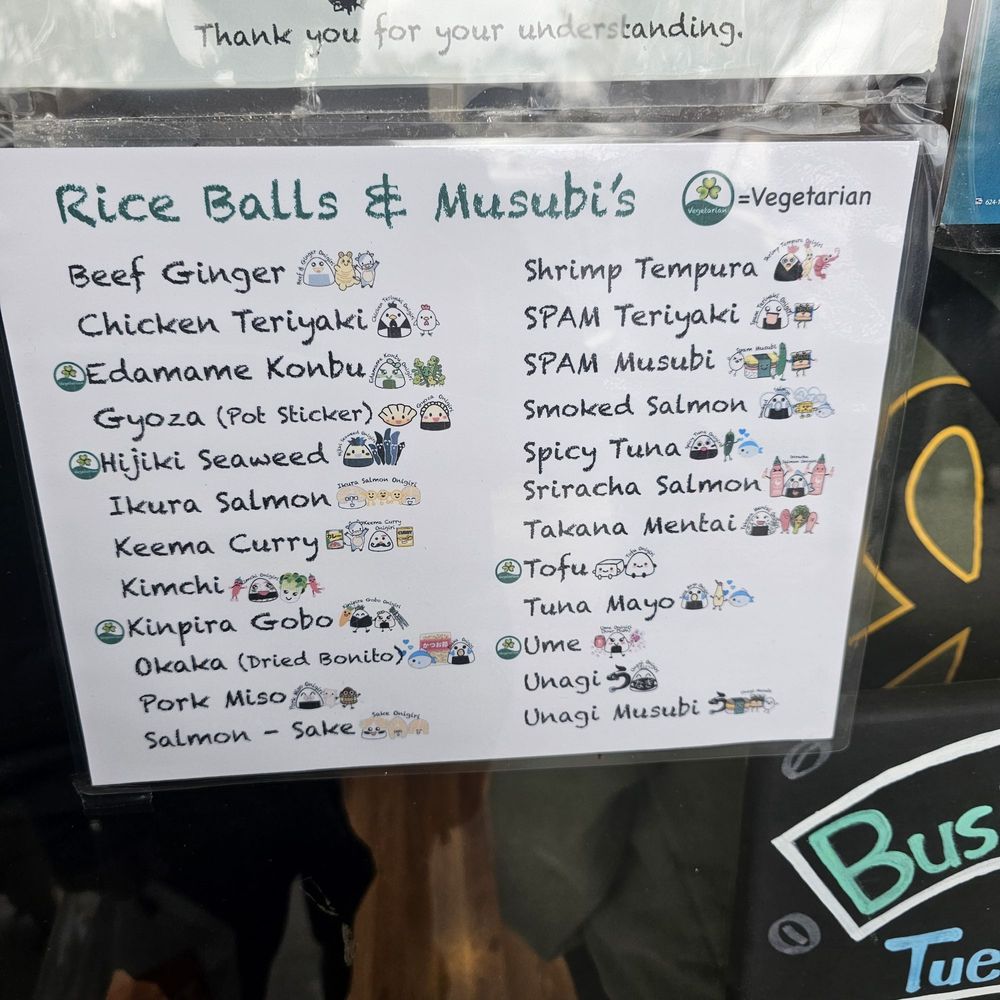 Thank you for your understanding.
Rice Balls & Musubi's
Vegetarian =Vegetarian
Beef Ginger
Chicken Teriyaki
Edamame Konbu
Gyoza (Pot Sticker)
Hijiki Seaweed
Ikura Salmon
Keema Curry
Kimchi
Kinpira Gobo
Okaka (Dried Bonito)
Pork Miso
Salmon - Sake
Shrimp Tempura
SPAM Teriyaki
SPAM Musubi
Smoked Salmon
Spicy Tuna
Sriracha Salmon
Takana Mentai
Tofu
Tuna Mayo
Ume
Unagi う
Unagi Musubi う
Bus
Tue